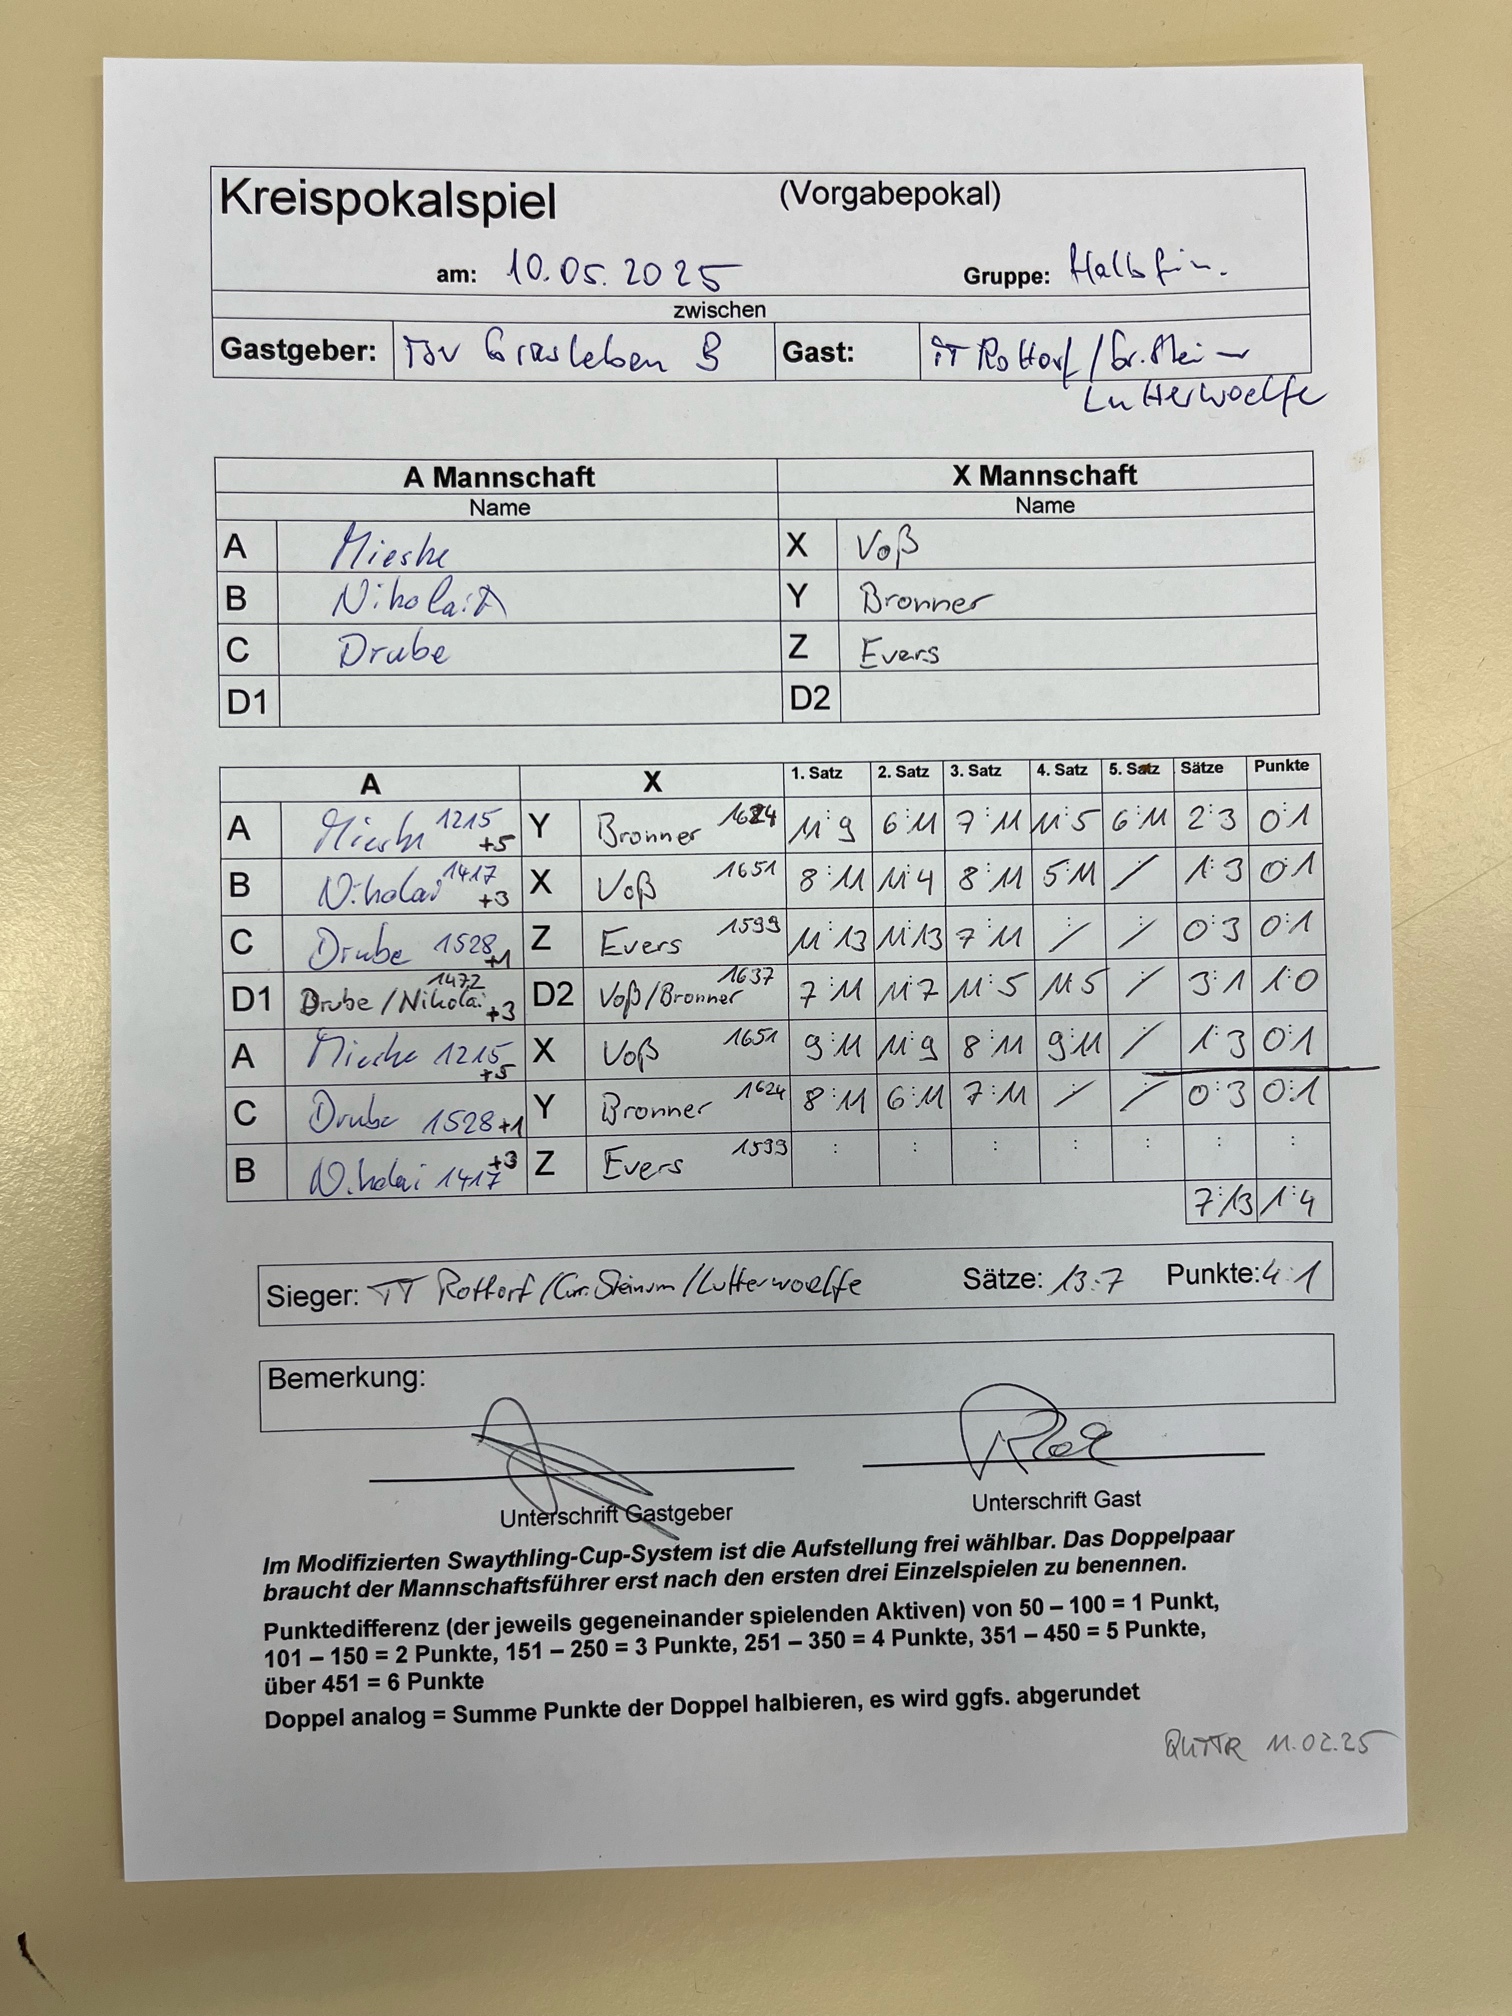 Kreispokalspiel (Vorgabepokal)
am: 10.05.2025 Gruppe: Halbfin.
zwischen
Gastgeber: TSV Grasleben B Gast: TT Rottorf/Gr.Stei
Lutterwoelfe
A Mannschaft X Mannschaft
Name Name
A Mieske X Voß
B Nikolait Y Bronner
C Drube Z Evers
D1 D2
A X 1. Satz 2. Satz 3. Satz 4. Satz 5. Satz Sätze Punkte
A Mieske 1215 +5 Y Bronner 1624 11:9 6:11 7:11 11:5 6:11 2:3 0:1
B Nikolai 1417 +3 X Voß 1651 8:11 11:4 8:11 5:11 / 1:3 0:1
C Drube 1528 +1 Z Evers 1599 11:13 11:13 7:11 / / 0:3 0:1
D1 Drube/Nikolai 1472 +3 D2 Voß/Bronner 1637 7:11 11:7 11:5 11:5 / 3:1 1:0
A Mieske 1215 +5 X Voß 1651 9:11 11:9 8:11 9:11 / 1:3 0:1
C Drube 1528 +1 Y Bronner 1624 8:11 6:11 7:11 / / 0:3 0:1
B Nikolai 1417 +3 Z Evers 1599 : : : : : : :
7:13 1:4
Sieger: TT Rottorf/Gr.Steinum/Lutterwoelfe Sätze: 13:7 Punkte: 4:1
Bemerkung:
Unterschrift Gastgeber Unterschrift Gast
Im Modifizierten Swaythling-Cup-System ist die Aufstellung frei wählbar. Das Doppelpaar
braucht der Mannschaftsführer erst nach den ersten drei Einzelspielen zu benennen.
Punktedifferenz (der jeweils gegeneinander spielenden Aktiven) von 50 – 100 = 1 Punkt,
101 – 150 = 2 Punkte, 151 – 250 = 3 Punkte, 251 – 350 = 4 Punkte, 351 – 450 = 5 Punkte,
über 451 = 6 Punkte
Doppel analog = Summe Punkte der Doppel halbieren, es wird ggfs. abgerundet
QTTR 11.02.25